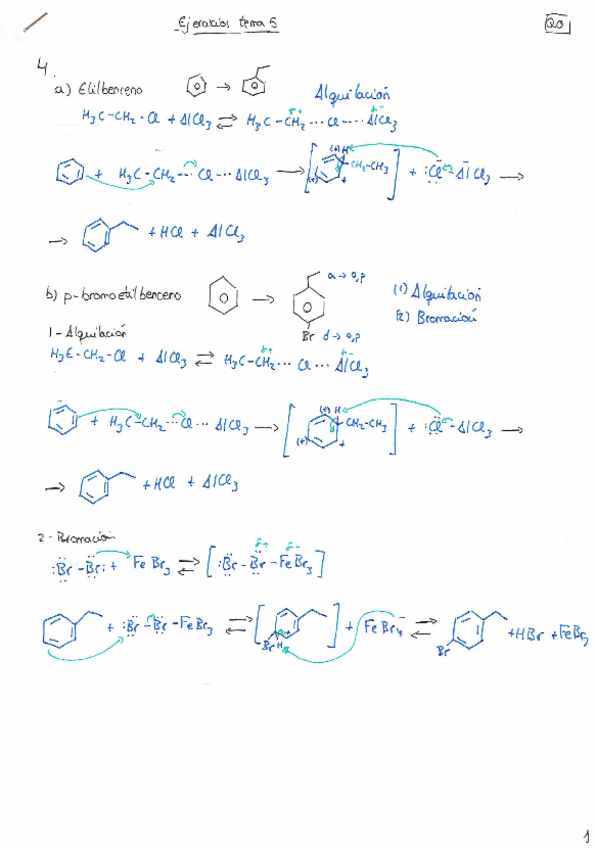 Ejercicios tema 5
QO
4.
a) Etilbenceno → Alquilación
H₃C-CH₂-Cl + AlCl₃ ⇌ H₃C-CH₂···Cl····AlCl₃
δ+ δ-
+ H₃C-CH₂···Cl···AlCl₃ → [(+) H CH₂-CH₃ (+) +] + :Cl-AlCl₃ →
→ + HCl + AlCl₃
b) p-bromoetilbenceno → a → o,p
(1) Alquilación
(2) Bromación
Br d → o,p
1-Alquilación
H₃C-CH₂-Cl + AlCl₃ ⇌ H₃C-CH₂···Cl···AlCl₃
δ+ δ-
+ H₃C-CH₂···Cl···AlCl₃ → [(+) H CH₂-CH₃ (+) +] + :Cl-AlCl₃ →
→ + HCl + AlCl₃
2-Bromación
:Br-Br: + FeBr₃ ⇌ [:Br-Br-FeBr₃]
δ+ δ-
+ :Br-Br-FeBr₃ ⇌ [Br H] + FeBr₄⁻ ⇌ Br + HBr + FeBr₃
1